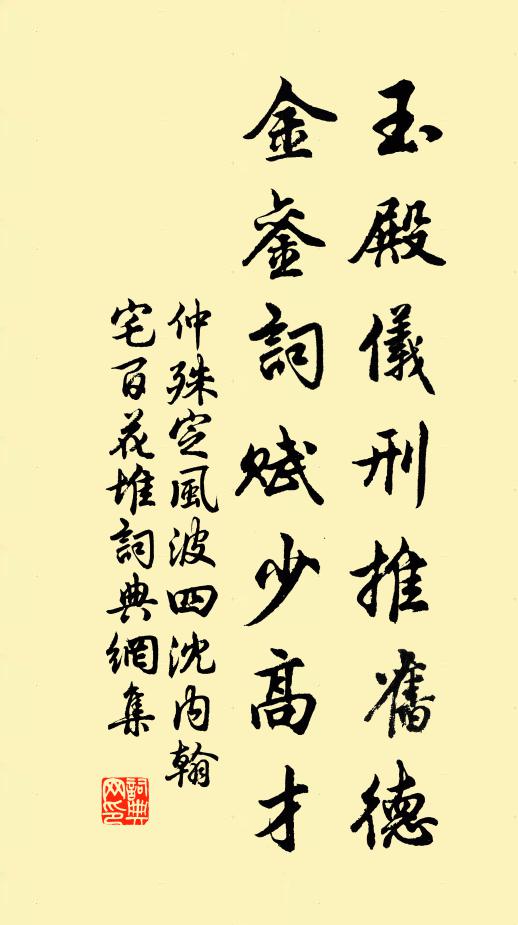 玉殿儀刑推舊德
金銮詞賦少高才
仲殊定風波四沈内翰
宅百花堆詞典網集
詞典
网印